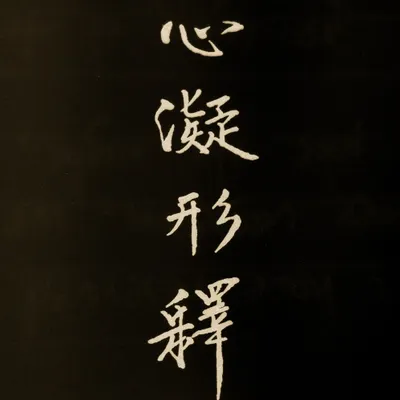 心凝形釋